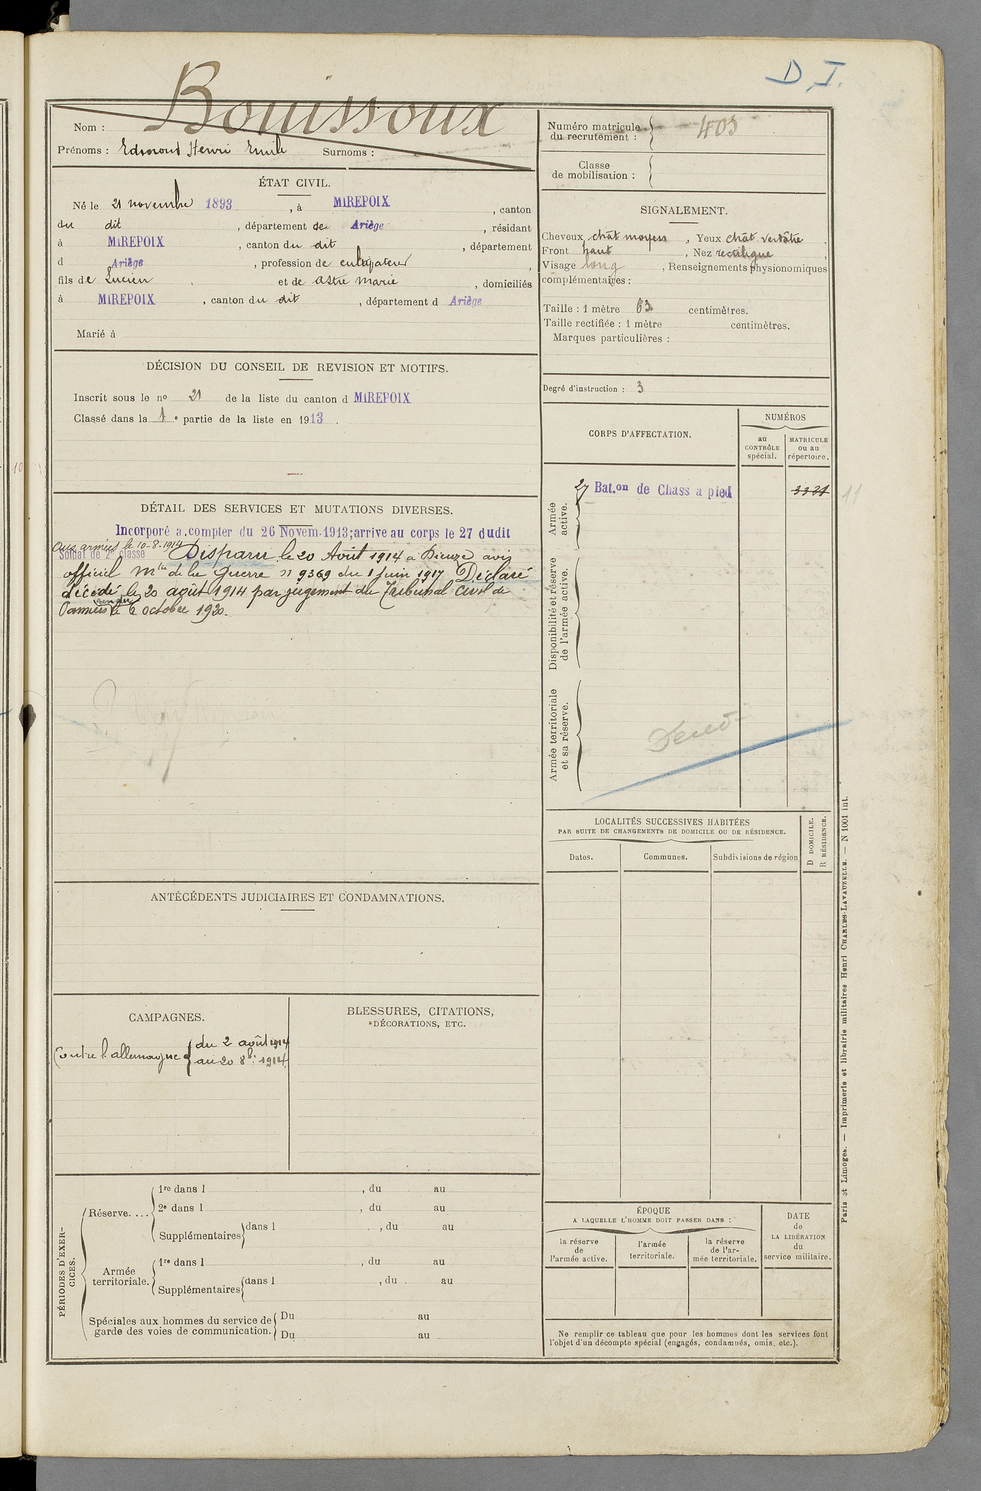 D I.
Nom : Bouissoux
Prénoms : Edmond Henri Emile Surnoms :
ÉTAT CIVIL.
Né le 21 novembre 1893, à MIREPOIX, canton
du dit, département de Ariège, résidant
à MIREPOIX, canton du dit, département
d Ariège, profession de cultivateur,
fils de Lucien et de Astre Marie, domiciliés
à MIREPOIX, canton du dit, département d Ariège
Marié à
DÉCISION DU CONSEIL DE REVISION ET MOTIFS.
Inscrit sous le no 21 de la liste du canton d MIREPOIX
Classé dans la 1e partie de la liste en 1913.
DÉTAIL DES SERVICES ET MUTATIONS DIVERSES.
Incorporé a compter du 26 Novem. 1913; arrive au corps le 27 dudit
Aux armées le 10-8-1914
Soldat de 2e classe Disparu le 20 Août 1914 à Dieuze avis
officiel Mtre de la Guerre n 9369 du 1 Juin 1917 Déclaré
décédé le 20 août 1914 par jugement du Tribunal Civil de
Pamiers rendu le 2 octobre 1920.
ANTÉCÉDENTS JUDICIAIRES ET CONDAMNATIONS.
CAMPAGNES.
Contre l'allemagne { du 2 août 1914
au 20 8t 1914
BLESSURES, CITATIONS,
DÉCORATIONS, ETC.
PÉRIODES D'EXERCICES.
Réserve....
1re dans l , du au
2e dans l , du au
Supplémentaires } dans l , du au
Armée territoriale.
1re dans l , du au
Supplémentaires { dans l , du au
Spéciales aux hommes du service de garde des voies de communication.
Du au
Du au
Numéro matricule du recrutement : 403
Classe de mobilisation :
SIGNALEMENT.
Cheveux chât moyen, Yeux chât verdâtre,
Front haut, Nez rectiligne,
Visage long, Renseignements physionomiques
complémentaires :
Taille : 1 mètre 63 centimètres.
Taille rectifiée : 1 mètre centimètres.
Marques particulières :
Degré d'instruction : 3
CORPS D'AFFECTATION.
NUMÉROS
au CONTRÔLE spécial.
MATRICULE ou au répertoire.
Armée active.
27 Bat.on de Chass a pied 3321
11
Disponibilité et réserve de l'armée active.
Armée territoriale et sa réserve.
LOCALITÉS SUCCESSIVES HABITÉES
PAR SUITE DE CHANGEMENTS DE DOMICILE OU DE RÉSIDENCE.
Dates.
Communes.
Subdivisions de région
D DOMICILE.
R RÉSIDENCE.
ÉPOQUE
A LAQUELLE L'HOMME DOIT PASSER DANS :
la réserve de l'armée active.
l'armée territoriale.
la réserve de l'armée territoriale.
DATE de LA LIBÉRATION du service militaire.
Ne remplir ce tableau que pour les hommes dont les services font
l'objet d'un décompte spécial (engagés, condamnés, omis, etc.).
Paris et Limoges. — Imprimerie et librairie militaires Henri CHARLES-LAVAUZELLE. — N 1001 int.